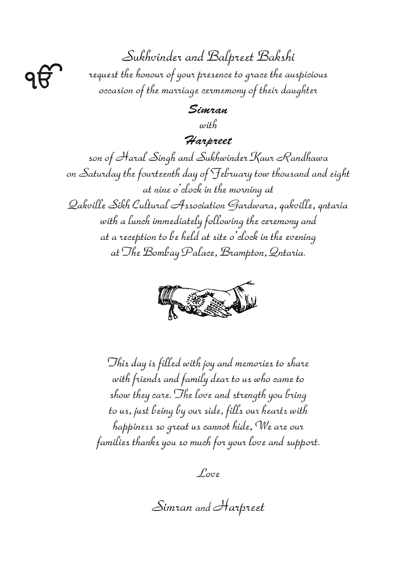 ੴ
Sukhvinder and Balpreet Bakshi
request the honour of your presence to grace the auspicious
occasion of the marriage cermemony of their daughter
Simran
with
Harpreet
son of Haral Singh and Sukhwinder Kaur Randhawa
on Saturday the fourteenth day of February tow thousand and eight
at nine o'clock in the morning at
Qakville Sikh Cultural Association Gardwara, qakville, qntaria
with a lunch immediately following the ceremony and
at a reception to be held at site o'clock in the evening
at The Bombay Palace, Brampton, Qntaria.
This day is filled with joy and memories to share
with friends and family dear to us who came to
show they care. The love and strength you bring
to us, just being by our side, fills our hearts with
happiness so great us cannot hide, We are our
families thanks you so much for your love and support.
Love
Simran and Harpreet